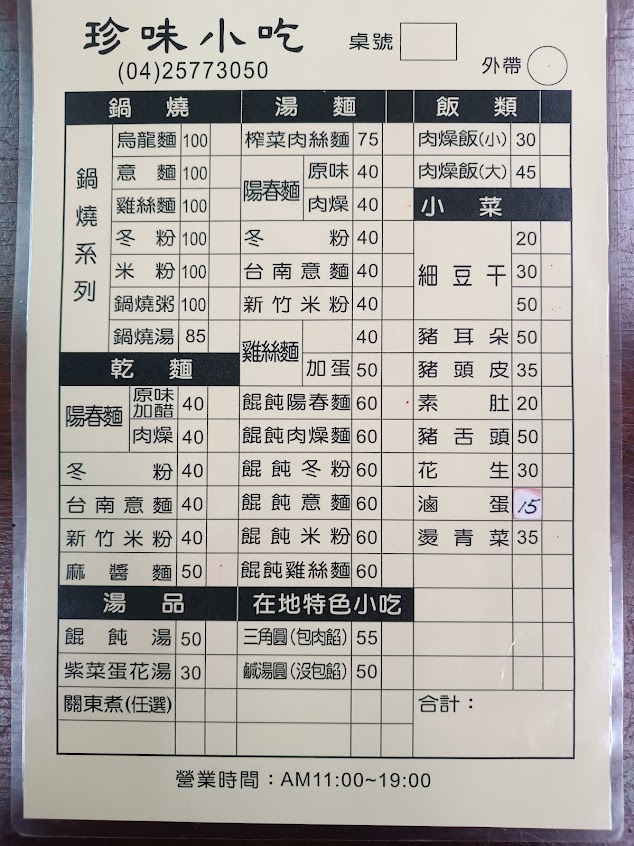 珍味小吃
桌號
(04)25773050
外帶
鍋燒
鍋燒系列
烏龍麵 100
意麵 100
雞絲麵 100
冬粉 100
米粉 100
鍋燒粥 100
鍋燒湯 85
乾麵
陽春麵
原味加醋 40
肉燥 40
冬粉 40
台南意麵 40
新竹米粉 40
麻醬麵 50
湯品
餛飩湯 50
紫菜蛋花湯 30
關東煮(任選)
湯麵
榨菜肉絲麵 75
陽春麵
原味 40
肉燥 40
冬粉 40
台南意麵 40
新竹米粉 40
雞絲麵
40
加蛋 50
餛飩陽春麵 60
餛飩肉燥麵 60
餛飩冬粉 60
餛飩意麵 60
餛飩米粉 60
餛飩雞絲麵 60
在地特色小吃
三角圓(包肉餡) 55
鹹湯圓(沒包餡) 50
飯類
肉燥飯(小) 30
肉燥飯(大) 45
小菜
細豆干
20
30
50
豬耳朵 50
豬頭皮 35
素肚 20
豬舌頭 50
花生 30
滷蛋 15
燙青菜 35
合計：
營業時間：AM11:00~19:00